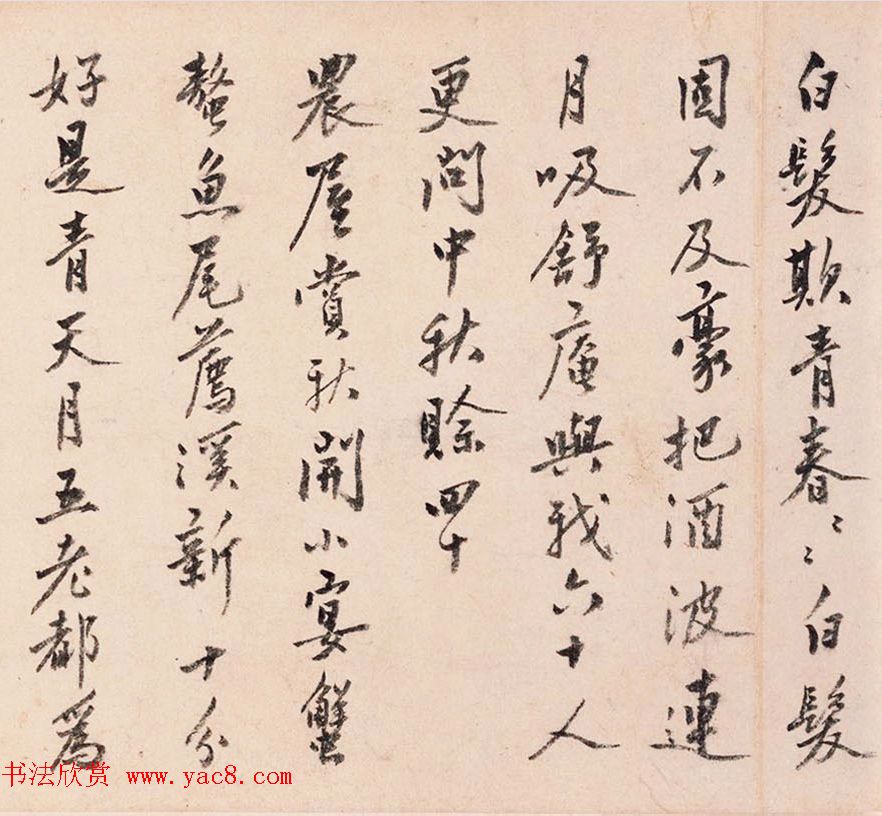 白髮欺青春〻〻白髮
固不及豪把酒波連
月吸舒庵與我六十人
更問中秋賒四十
農屋賞秋開小宴蟹
螯魚尾薦溪新十分
好是青天月五老都爲
书法欣赏 www.yac8.com